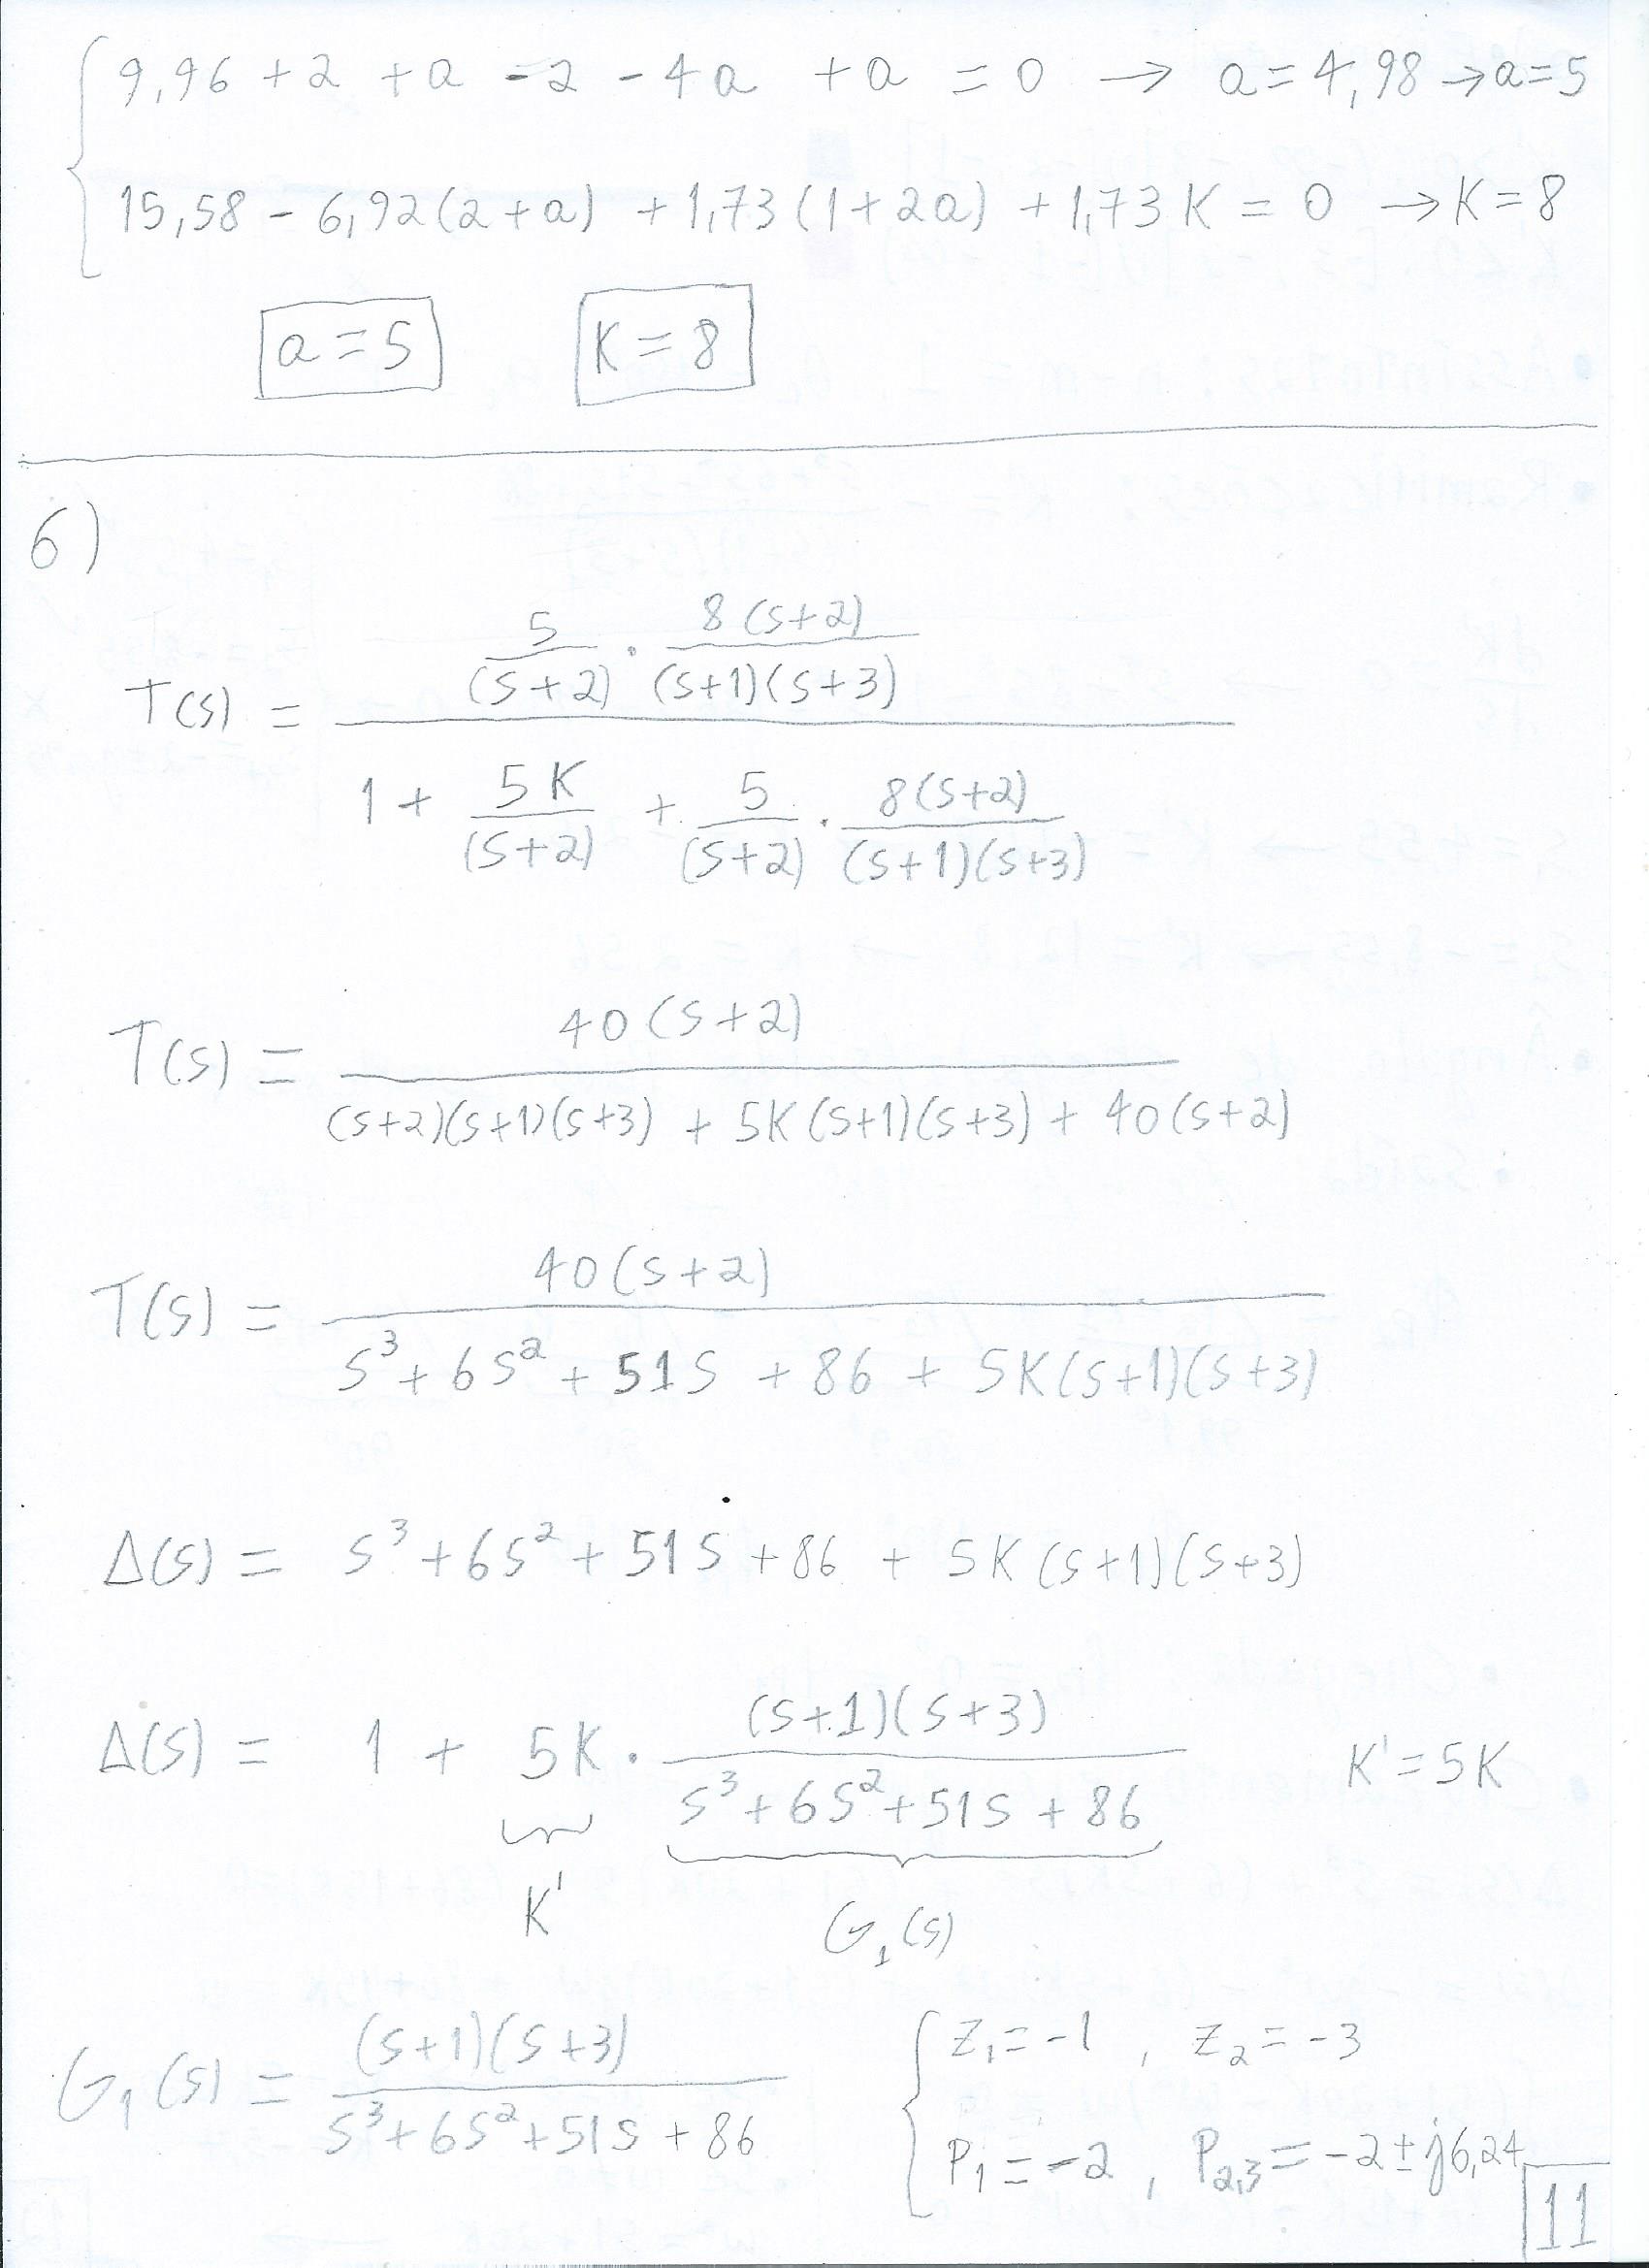 9,96 + 2 + a - 2 - 4a + a = 0 → a = 4,98 → a = 5
15,58 - 6,92(2+a) + 1,73(1+2a) + 1,73K = 0 → K = 8
a = 5 K = 8
6)
T(s) = 5/(s+2) · 8(s+2)/(s+1)(s+3)
1 + 5K/(s+2) + 5/(s+2) · 8(s+2)/(s+1)(s+3)
T(s) = 40(s+2)
(s+2)(s+1)(s+3) + 5K(s+1)(s+3) + 40(s+2)
T(s) = 40(s+2)
s³ + 6s² + 51s + 86 + 5K(s+1)(s+3)
Δ(s) = s³ + 6s² + 51s + 86 + 5K(s+1)(s+3)
Δ(s) = 1 + 5K · (s+1)(s+3)/s³+6s²+51s+86 K' = 5K
K' G₁(s)
G₁(s) = (s+1)(s+3)/s³+6s²+51s+86
z₁ = -1 , z₂ = -3
P₁ = -2 , P₂,₃ = -2 ± j6,24
11